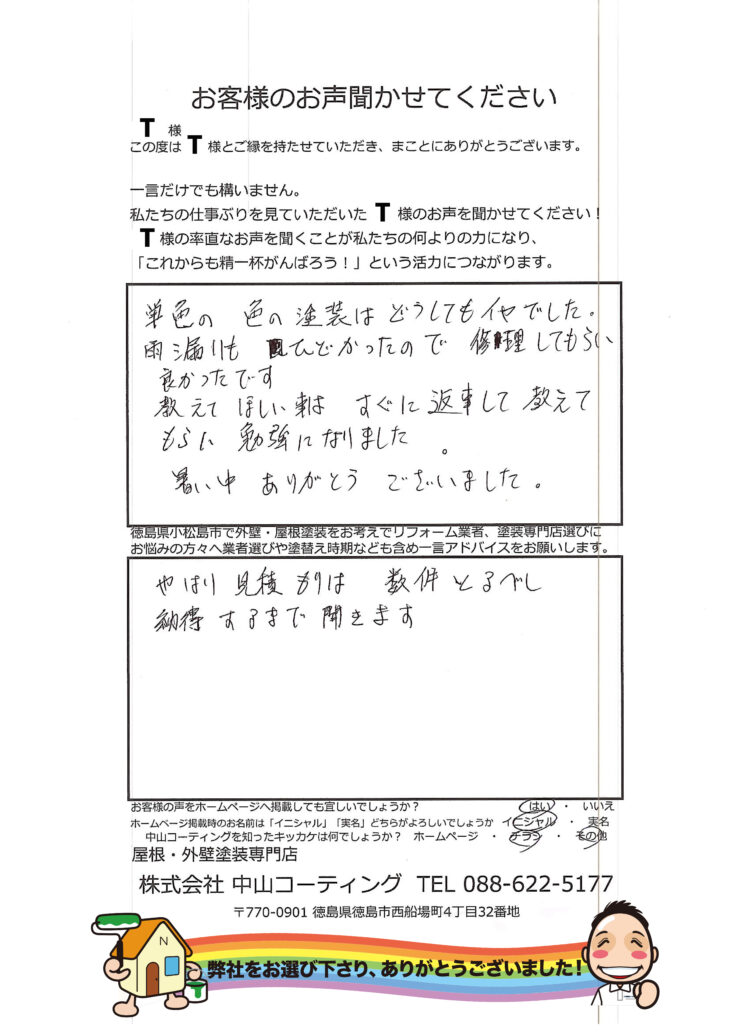 お客様のお声聞かせてください
T 様
この度は T 様とご縁を持たせていただき、まことにありがとうございます。
一言だけでも構いません。
私たちの仕事ぶりを見ていただいた T 様のお声を聞かせてください！
T 様の率直なお声を聞くことが私たちの何よりの力になり、
「これからも精一杯がんばろう！」という活力につながります。
単色の 色の塗装は どうしてもイヤでした。
雨漏りも ひどかったので 修理してもらい
良かったです
教えて ほしい事は すぐに返事して教えて
もらい 勉強になりました。
暑い中 ありがとう ございました。
徳島県小松島市で外壁・屋根塗装をお考えでリフォーム業者、塗装専門店選びに
お悩みの方々へ業者選びや塗替え時期なども含め一言アドバイスをお願いします。
やはり 見積もりは 数件とるべし
納得するまで聞きます
お客様の声をホームページへ掲載しても宜しいでしょうか？ はい ・ いいえ
ホームページ掲載時のお名前は「イニシャル」「実名」どちらがよろしいでしょうか イニシャル ・ 実名
中山コーティングを知ったキッカケは何でしょうか？ ホームページ ・ チラシ ・ その他
屋根・外壁塗装専門店
株式会社 中山コーティング TEL 088-622-5177
〒770-0901 徳島県徳島市西船場町4丁目32番地
N
弊社をお選び下さり、ありがとうございました！